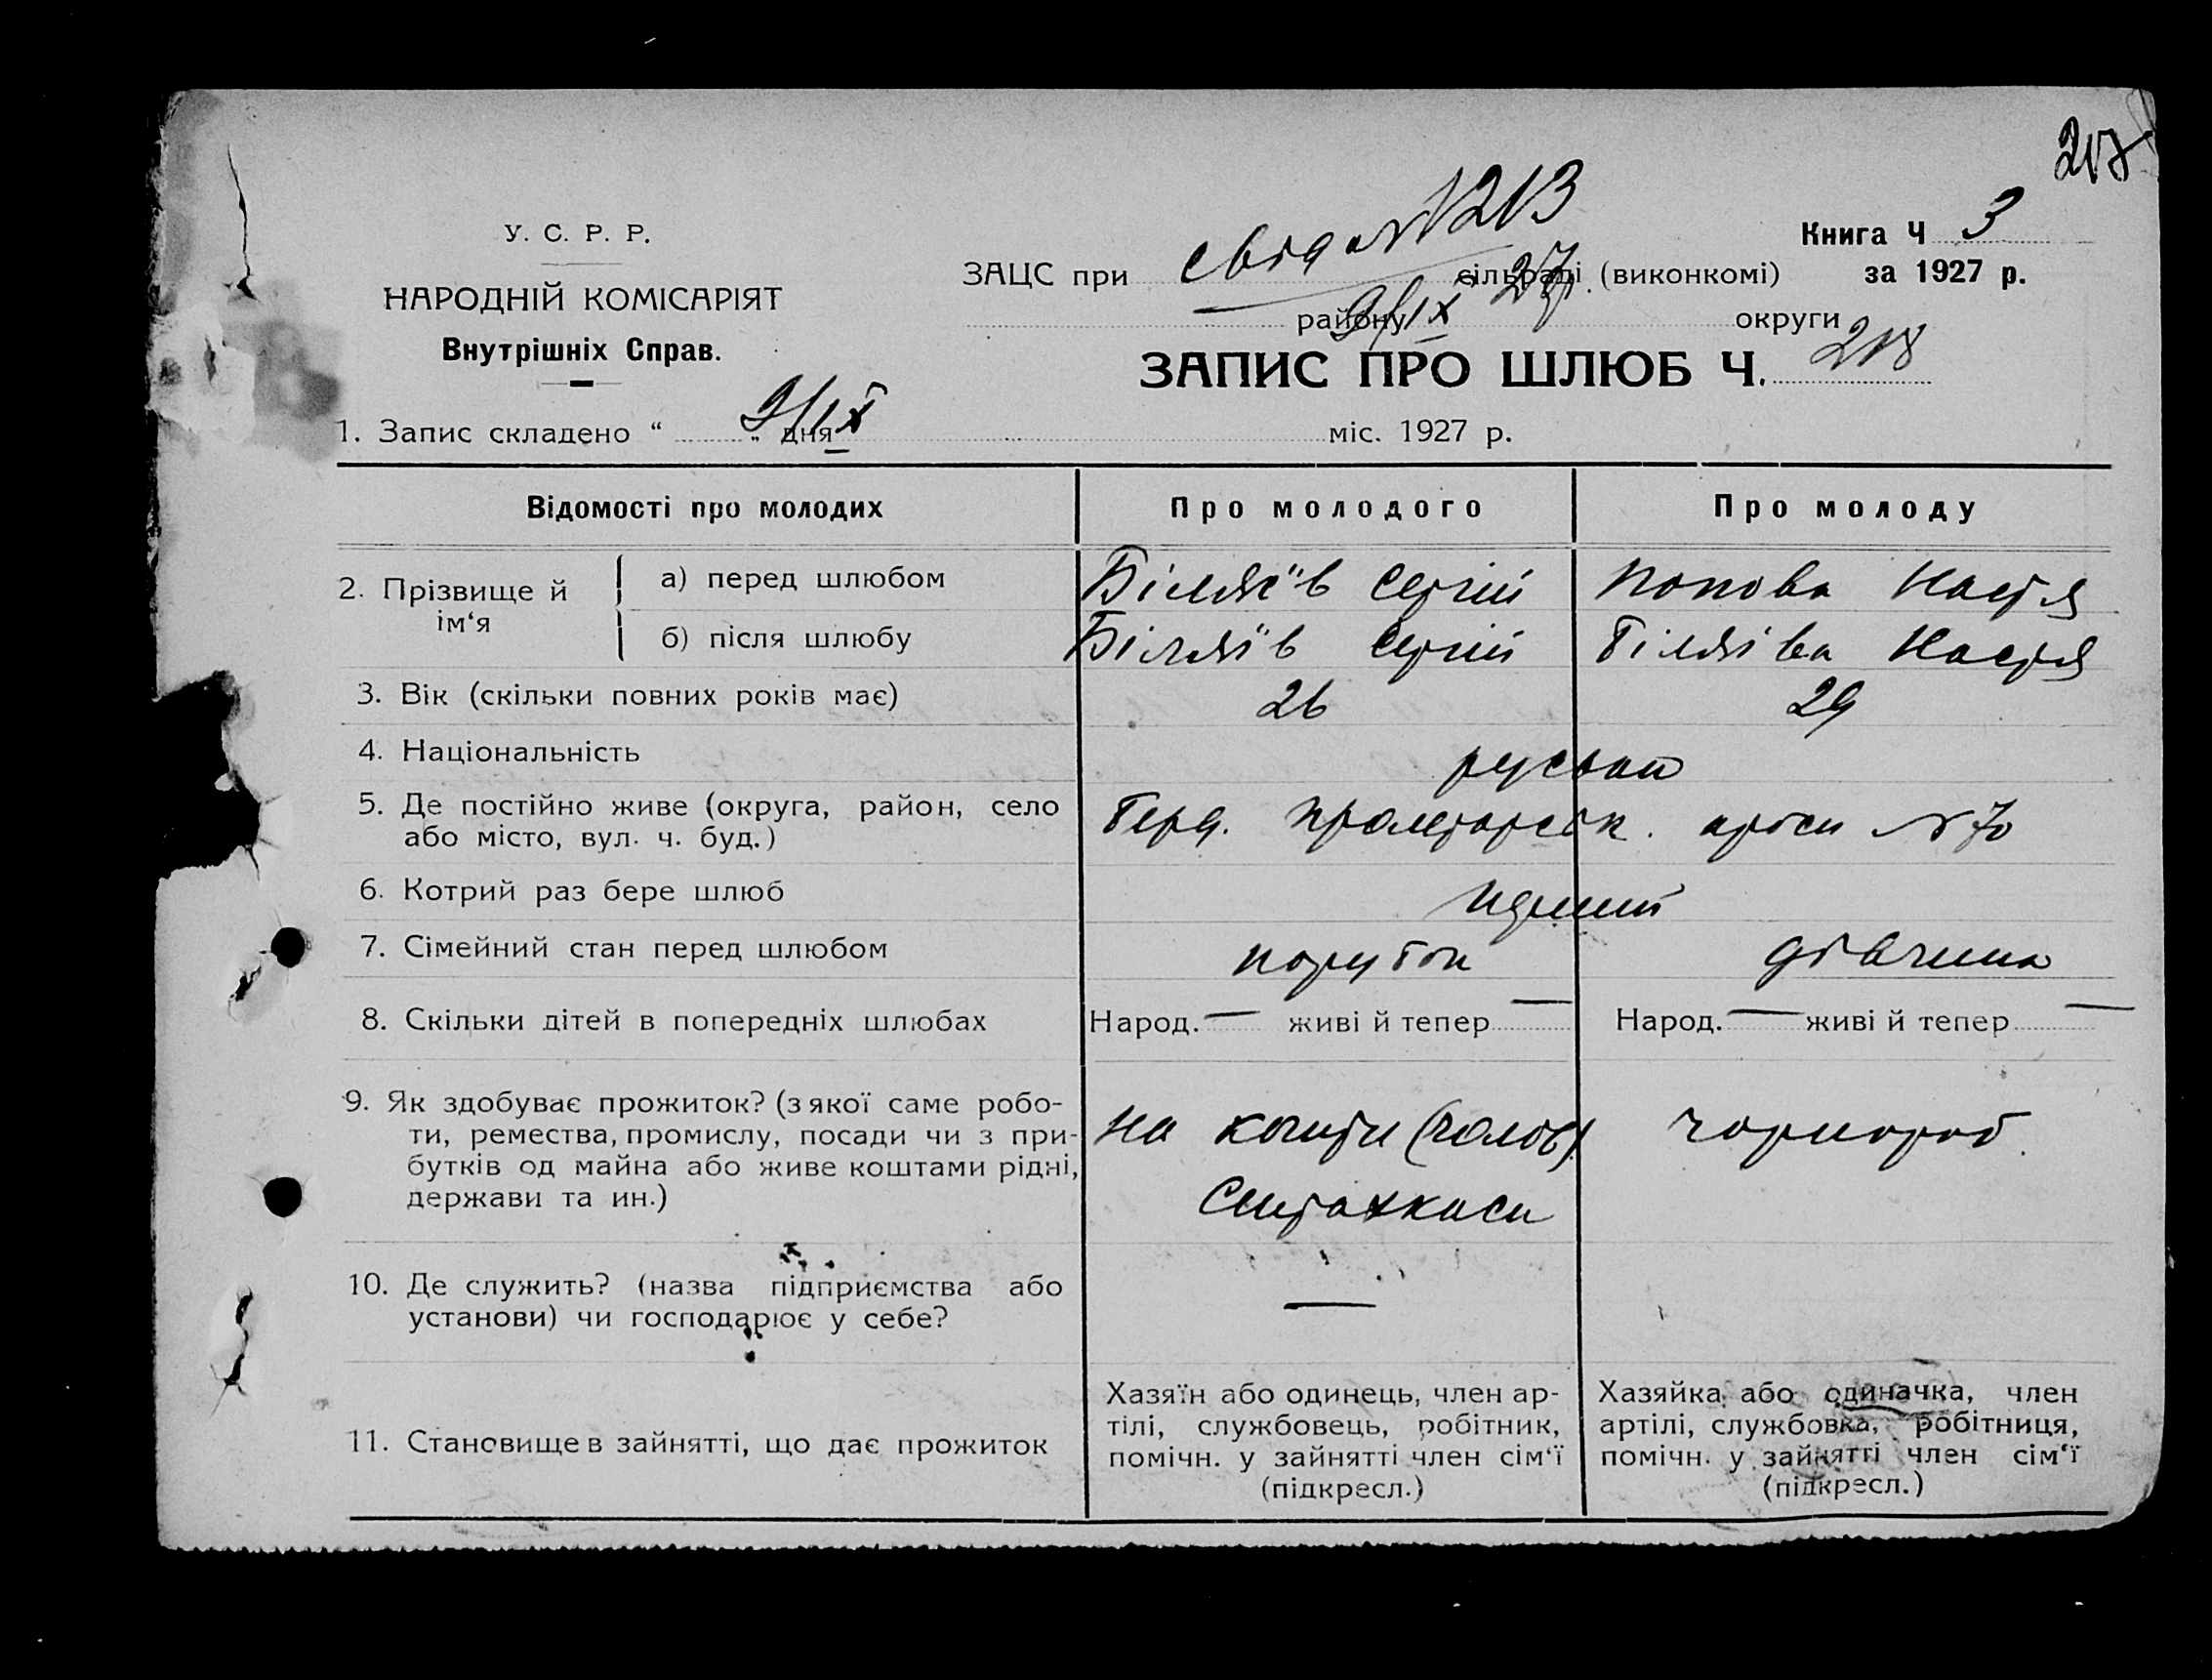 217
У. С. Р. Р.
НАРОДНІЙ КОМІСАРІЯТ
Внутрішніх Справ.
свід № 1213
ЗАЦС при сільраді (виконкомі)
Книга Ч 3
за 1927 р.
9/IX 27
району округи
ЗАПИС ПРО ШЛЮБ Ч. 218
1. Запис складено “ 9/IX „ дня міс. 1927 р.
Відомості про молодих Про молодого Про молоду
2. Прізвище й ім‘я
а) перед шлюбом Біляїв Сергій Попова Настя
б) після шлюбу Біляїв Сергій Біляїва Настя
3. Вік (скільки повних років має) 26 29
4. Національність
5. Де постійно живе (округа, район, село Берд. Пролетарськ. № 70
або місто, вул. ч. буд.)
6. Котрий раз бере шлюб перший
7. Сімейний стан перед шлюбом парубок дівчина
8. Скільки дітей в попередніх шлюбах Народ. — живі й тепер — Народ. — живі й тепер —
9. Як здобуває прожиток? (з якої саме робо-
ти, ремества, промислу, посади чи з при- на кошти чорнороб
бутків од майна або живе коштами рідні,
держави та ин.) Страхкаси
10. Де служить? (назва підприємства або
установи) чи господарює у себе? —
11. Становище в зайнятті, що дає прожиток
Хазяїн або одинець, член ар-
тілі, службовець, робітник,
помічн. у зайнятті член сім‘ї
(підкресл.)
Хазяйка або одиначка, член
артілі, службовка, робітниця,
помічн. у зайнятті член сім‘ї
(підкресл.)